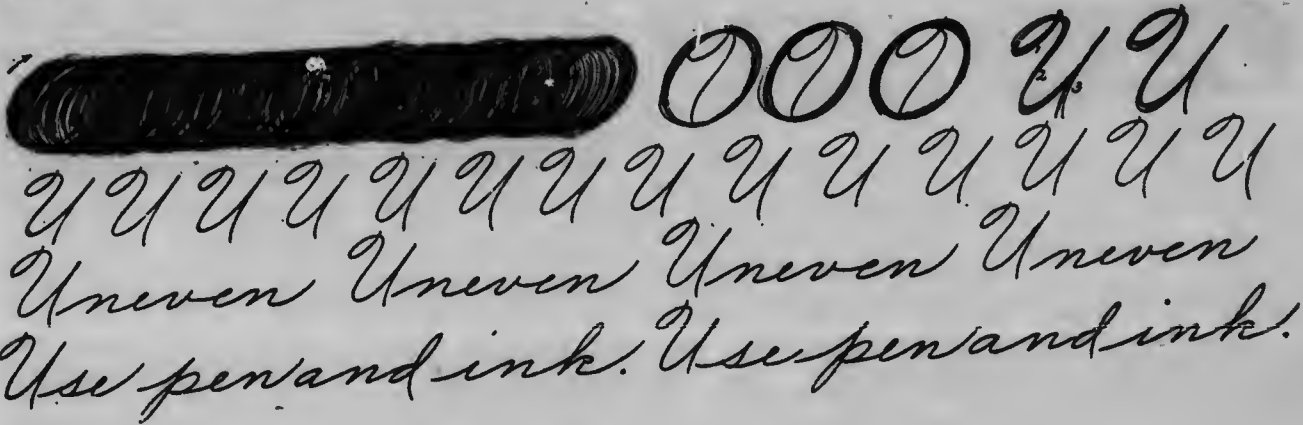 O O O U U
U U U U U U U U U U U U U U
Uneven Uneven Uneven Uneven
Use pen and ink. Use pen and ink.